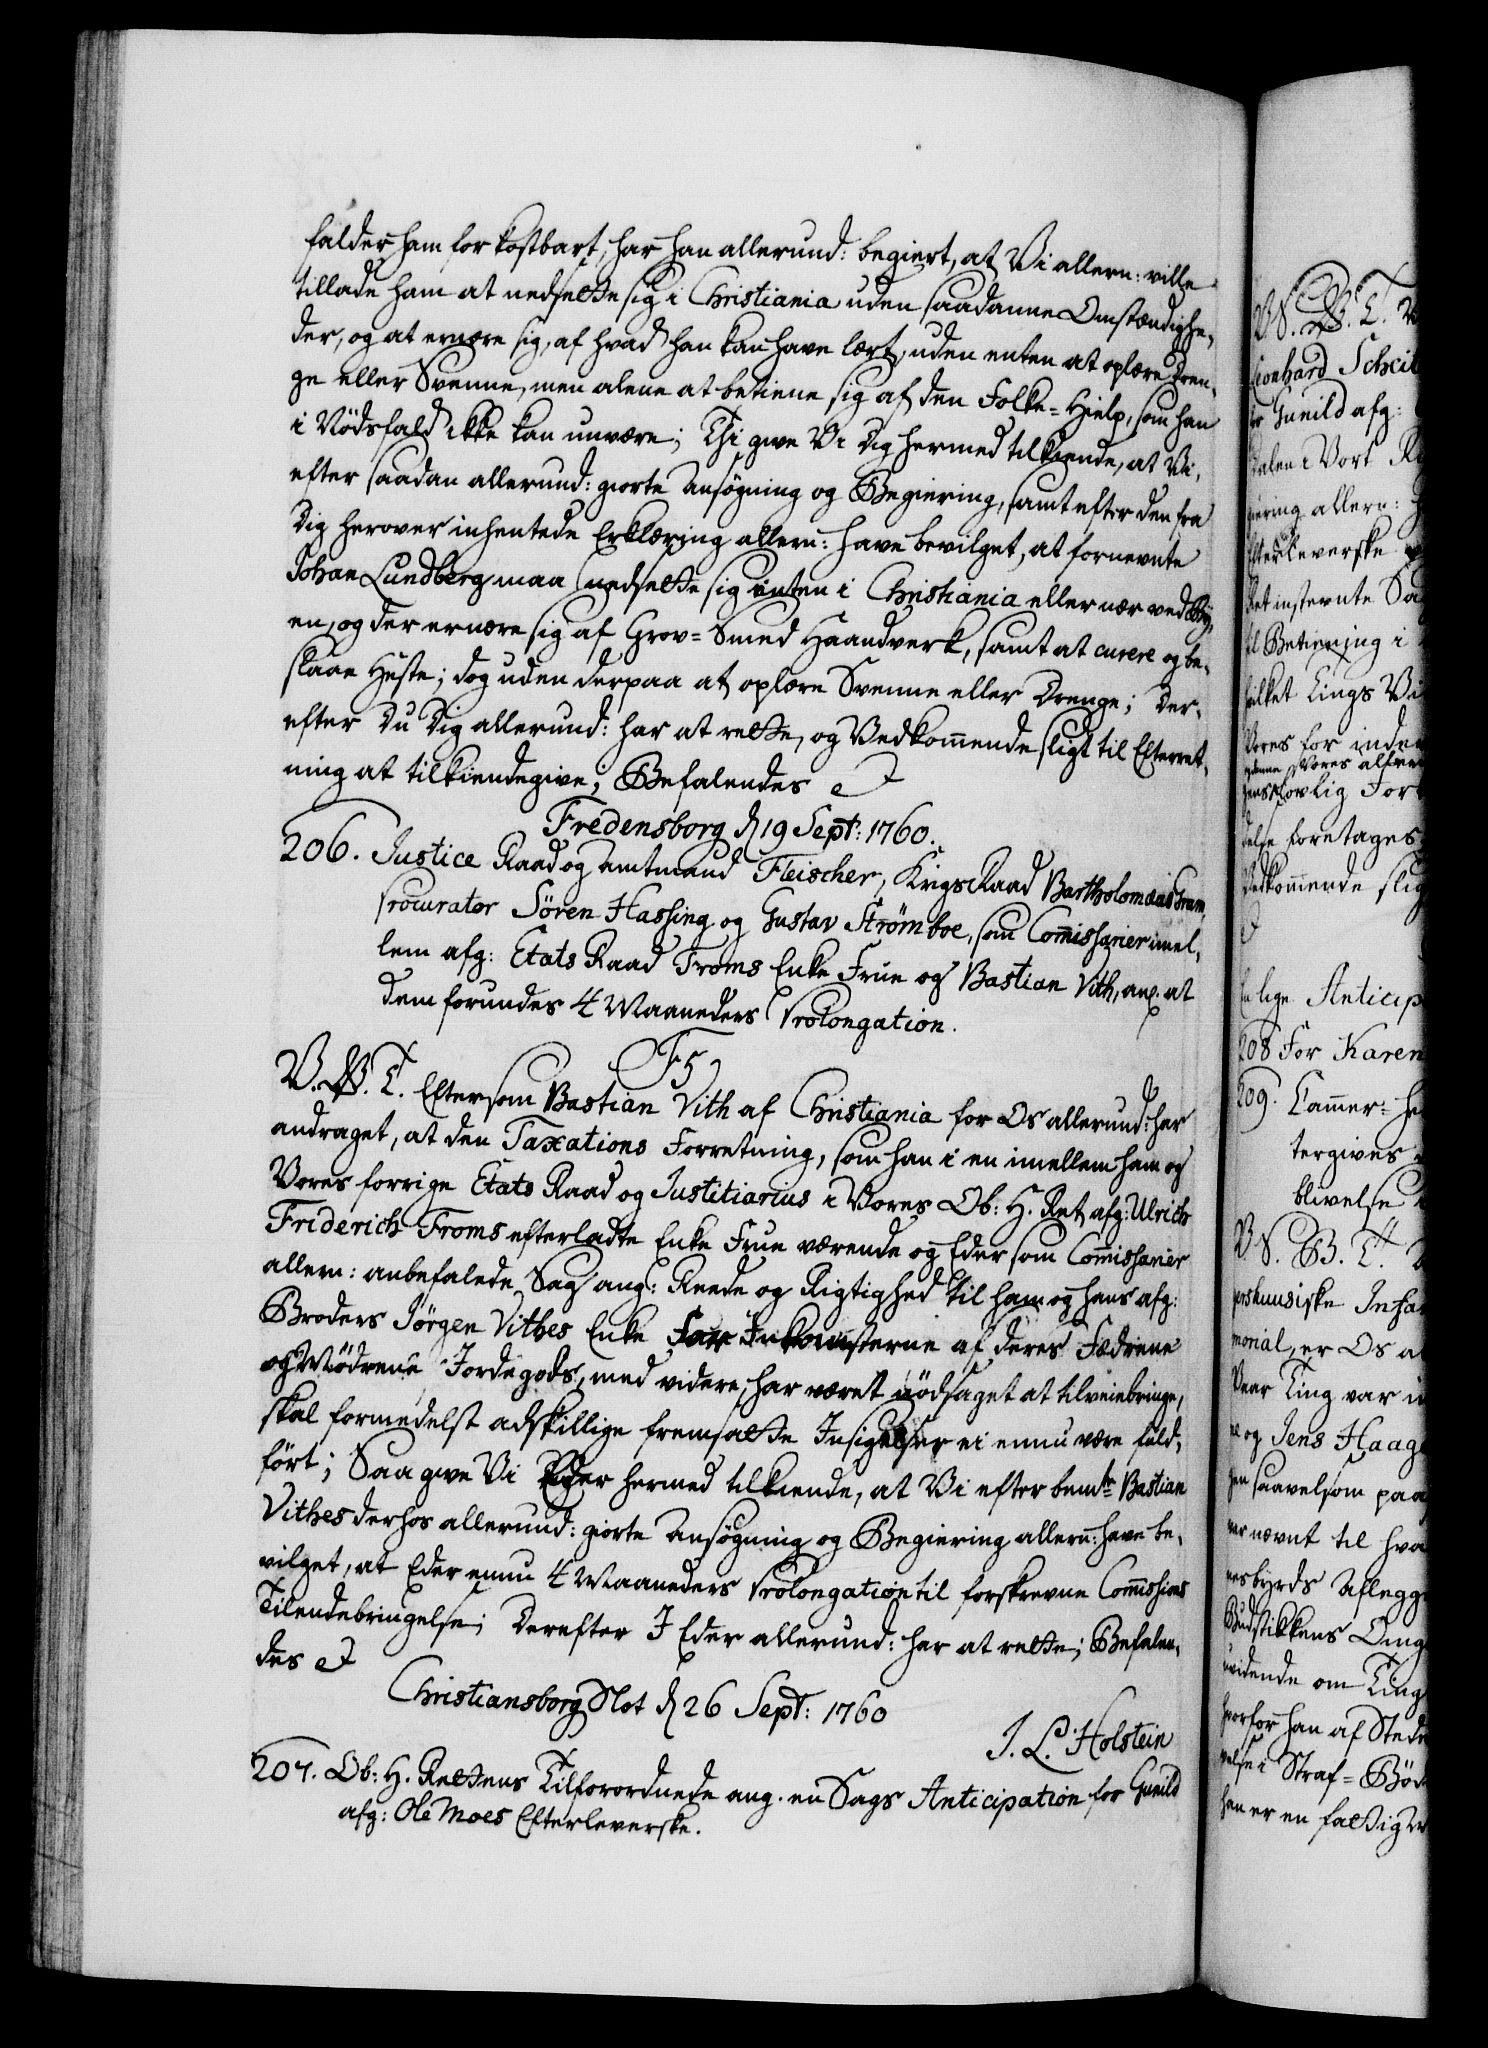 falder ham for kostbart, har han allerund: begiert, at Vi allern: ville
tillade ham at nedsette sig i Christiania uden saadanne Omstændighe-
der, og at ernære sig, af hvad han kan have lært, uden enten at oplære Dren-
ge eller Svenne, men alene at betiene sig af den Folke-Hielp, som han
i Nödsfald ikke kan unvære; Thi give Vi Dig hermed tilkiende, at Vi,
efter saadan allerund: giorte Ansøgning og Begiering, samt efter den fra
Dig herover inhentede Erklæring allern: have bevilget, at fornevnte
Johan Lundberg maa nedsette sig enten i Christiania eller nær ved Bÿ-
en, og der ernære sig af Grov-Smed Haandverk, samt at curere og be-
slaae Heste; dog uden derpaa at oplære Svenne eller Drenge; Der-
efter Du Dig allerund: har at rette, og Vedkom̄ende sligt til Efterret-
ning at tilkiendegive, Befalendes
Fredensborg d 19 Sept: 1760.
206. Justice Raad og Amtmand Fleischer, KrigsRaad Bartholomæus Gram,
Procurator Sören Hassing og Gustav Strömboe, som Com̄issarier imel-
lem afg: Etats Raad Troms Enke Frue og Bastian Vith, ang. at
dem forundes 4 Maaneders Prolongation.
F5
V. G. T. Eftersom Bastian Vith af Christiania for Os allerund: har
andraget, at den Taxations Forretning, som han i en imellem ham og
Vores forrige Etats Raad og Justitiarius i Vores Ob: H. Ret afg: Ulrich
Friderich Froms efterladte Enke Frue værende og Eder som Com̄issarier
allern: anbefalede Sag ang: Reede og Rigtighed til ham og hans afg:
Broders Jörgen Vithes Enke for Inkomsterne af deres Fædrene
og Mödrene Jordegods, med videre, har været nödsaget at tilveiebringe,
skal formedelst adskillige fremsatte Insigelser ei ennu være fuld-
fört; Saa give Vi Eder hermed tilkiende, at Vi efter bemte Bastian
Vithes derhos allerund: giorte Ansøgning og Begiering allern: have be-
vilget, at Eder ennu 4 Maaneders Prolongation til forskrevne Com̄issions
Tilendebringelse; Derefter I Eder allerund: har at rette; Befalen-
des
Christiansborg Slot d 26 Sept: 1760
J. L. Holstein
207. Ob: H. Rettens Tilforordnede ang. en Sags Anticipation for Gunild
afg: Ole Moes Efterleverske.
Leonhard Scheit
Gunild afg:
dalen i Vort
giering allern:
Efterleverske
Ret instevnte Sa
til Betiening i
hvilket Tings Vi
Vores for inde
Vores aller
lovlig For
delse foretages
Vedkom̄ende slig
lige Anticip
208 For Karen
209. Cam̄er-He
tergives
blivelse
V S. G. T.
Insa
morial, er Os a
Vaar Ting var i
og Jens Haag
saavelsom paa
nævnt til hva
byrds Aflegg
Budstikkens Omg
uvidende om Ting
hvorfor han af Sted
velse i Straf-Böd
han er en fattig